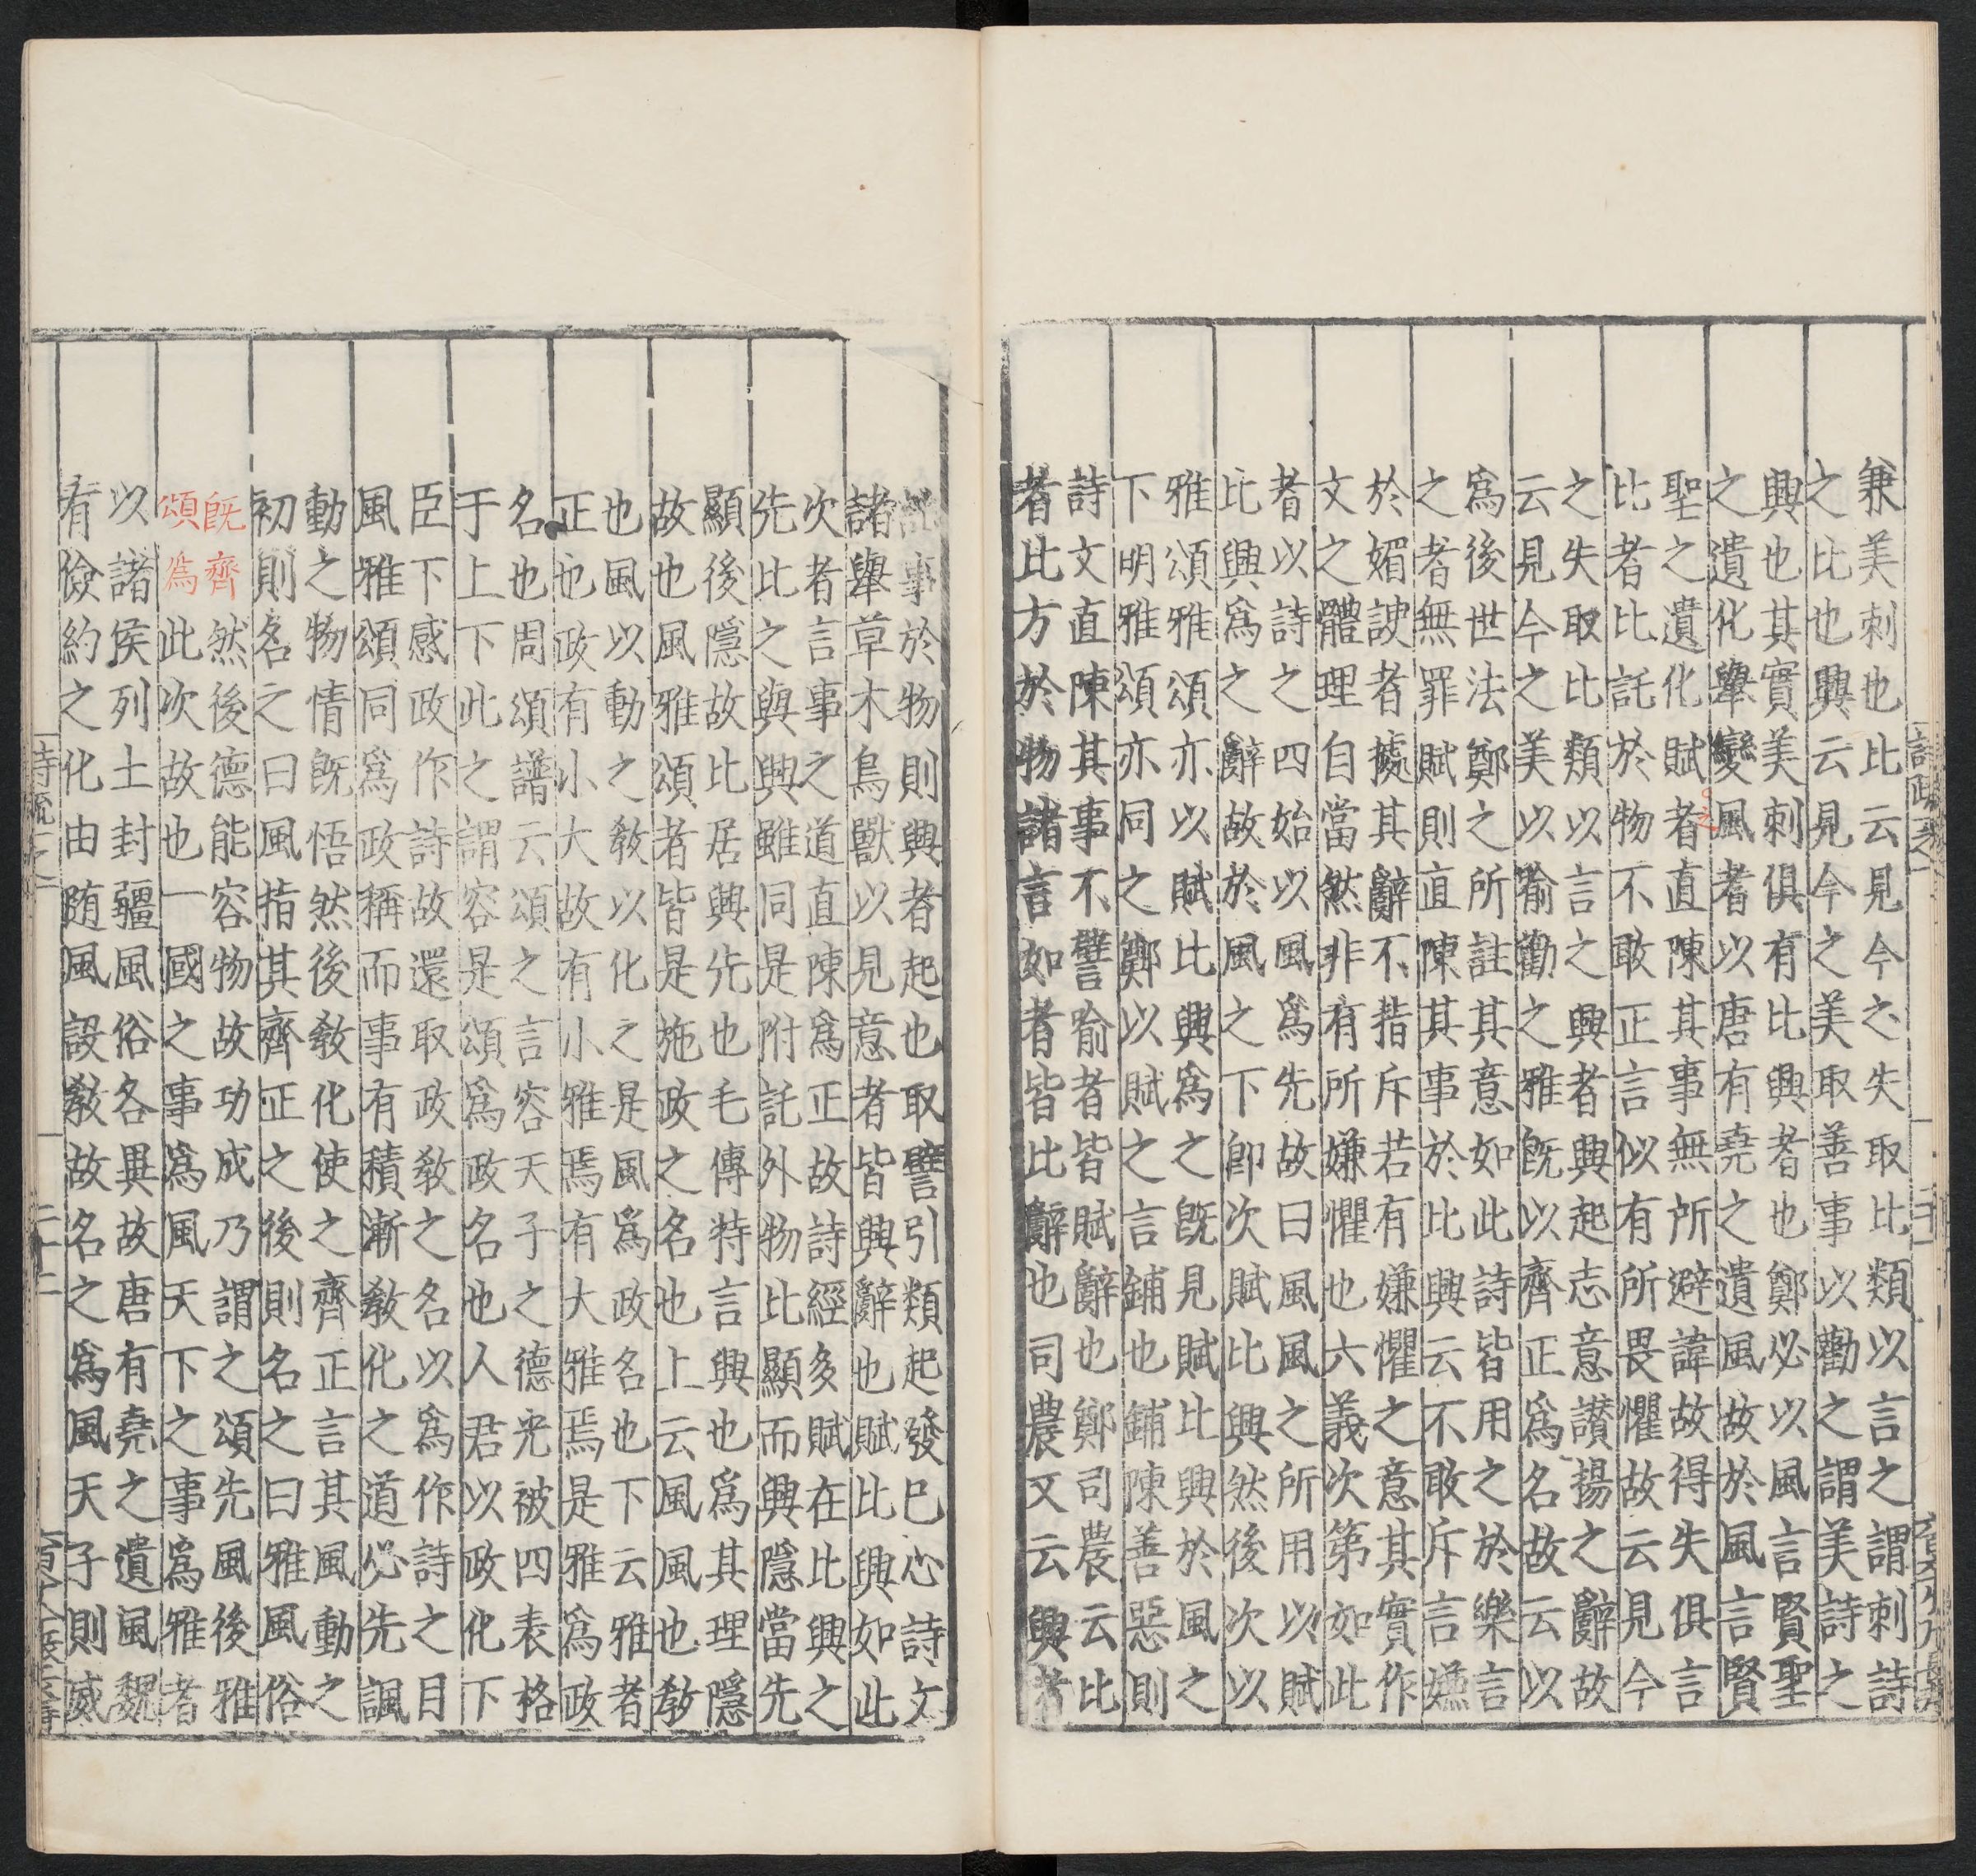 兼美刺也比云見今之失取比類以言之謂刺詩
之比也興云見今之美取善事以勸之謂美詩之
興也其實美刺俱有比興者也鄭必以風言賢聖
之遺化舉變風者以唐有堯之遺風故於風言賢
聖之遺化賦者直陳其事無所避諱故得失俱言
比者比託於物不敢正言似有所畏懼故云見今
之失取比類以言之興者興起志意讚揚之辭故
云見今之美以喻勸之雅既以齊正爲名故云以
爲後世法鄭之所註其意如此詩皆用之於樂言
之者無罪賦則直陳其事於比興云不敢斥言嫌
於媚諛者據其辭不指斥若有嫌懼之意其實作
文之體理自當然非有所嫌懼也六義次第如此
者以詩之四始以風爲先故曰風風之所用以賦
比興爲之辭故於風之下卽次賦比興然後次以
雅頌雅頌亦以賦比興爲之既見賦比興於風之
下明雅頌亦同之鄭以賦之言鋪也鋪陳善惡則
詩文直陳其事不譬喻者皆賦辭也鄭司農云比
者比方於物諸言如者皆比辭也司農又云興者
託事於物則興者起也取譬引類起發已心詩文
諸舉草木鳥獸以見意者皆興辭也賦比興如此
次者言事之道直陳爲正故詩經多賦在比興之
先比之與興雖同是附託外物比顯而興隱當先
顯後隱故比居興先也毛傳特言興也爲其理隱
故也風雅頌者皆是施政之名也上云風風也教
也風以動之教以化之是風爲政名也下云雅者
正也政有小大故有小雅焉有大雅焉是雅爲政
名也周頌譜云頌之言容天子之德光被四表格
于上下此之謂容是頌爲政名也人君以政化下
臣下感政作詩故還取政教之名以爲作詩之目
風雅頌同爲政稱而事有積漸教化之道必先諷
動之物情既悟然後教化使之齊正言其風動之
初則名之曰風指其齊正之後則名之曰雅風俗
既齊然後德能容物故功成乃謂之頌先風後雅
頌爲此次故也一國之事爲風天下之事爲雅者
以諸侯列土封疆風俗各異故唐有堯之遺風魏
有儉約之化由随風設教故名之爲風天子則威